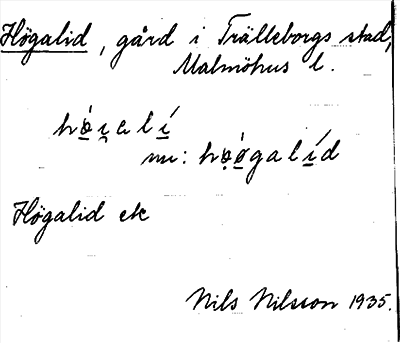 Högalid, gård i Trälleborgs stad,
Malmöhus l.
hǿi̯alí
nu: hø̣ǿgalíd
Högalid etc
Nils Nilsson 1935.